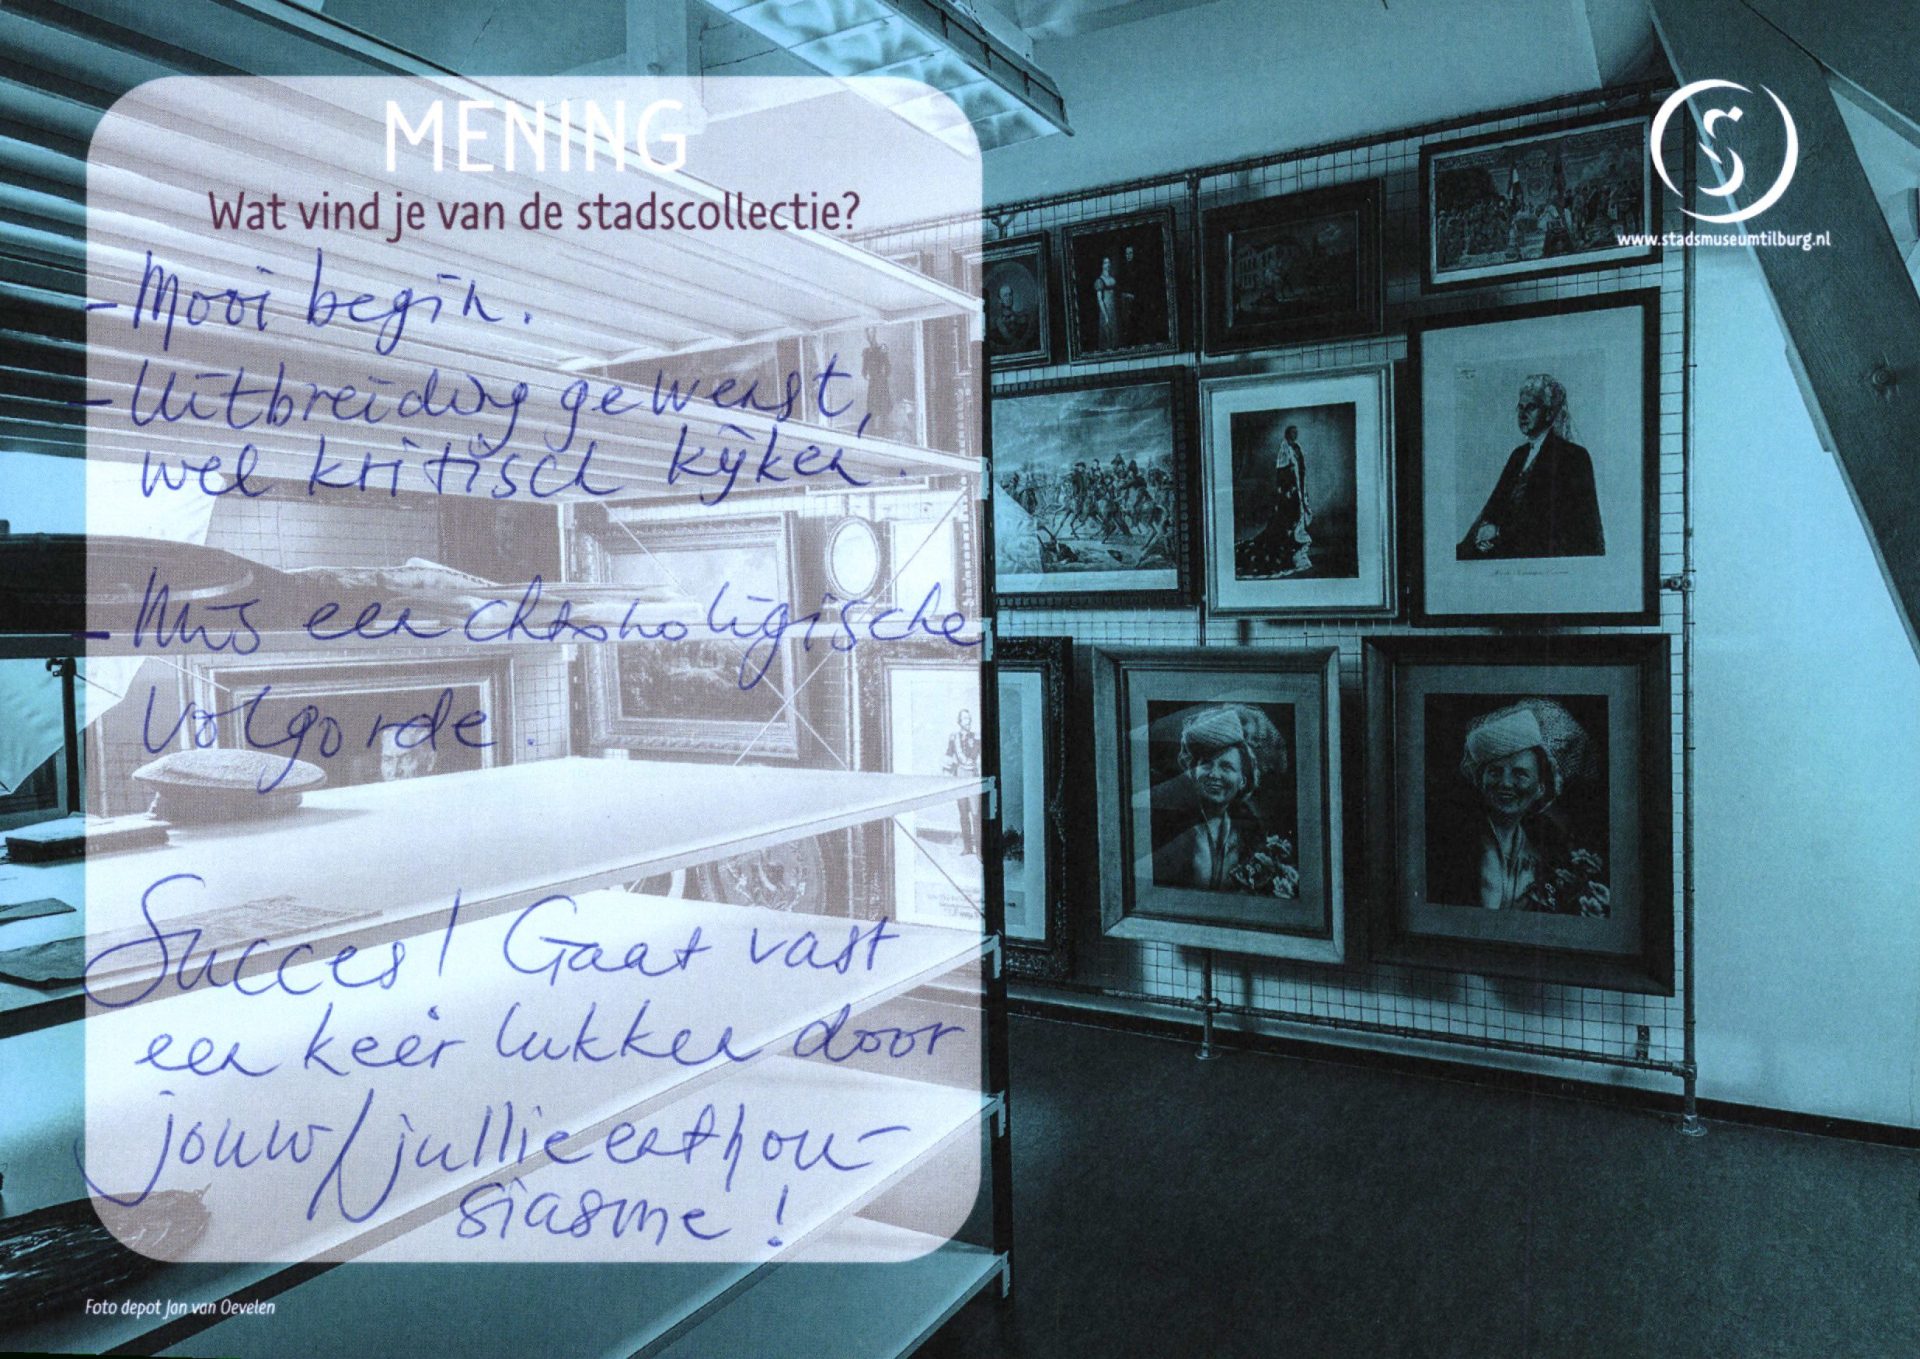 MENING
Wat vind je van de stadscollectie?
- Mooi begin.
- Uitbreiding gewenst,
wel kritisch kijken.
- Mis een chronoligische
volgorde.
Succes! Gaat vast
een keer lukken door
jouw/jullie enthou-
siasme!
www.stadsmuseumtilburg.nl
Foto depot Jan van Oevelen